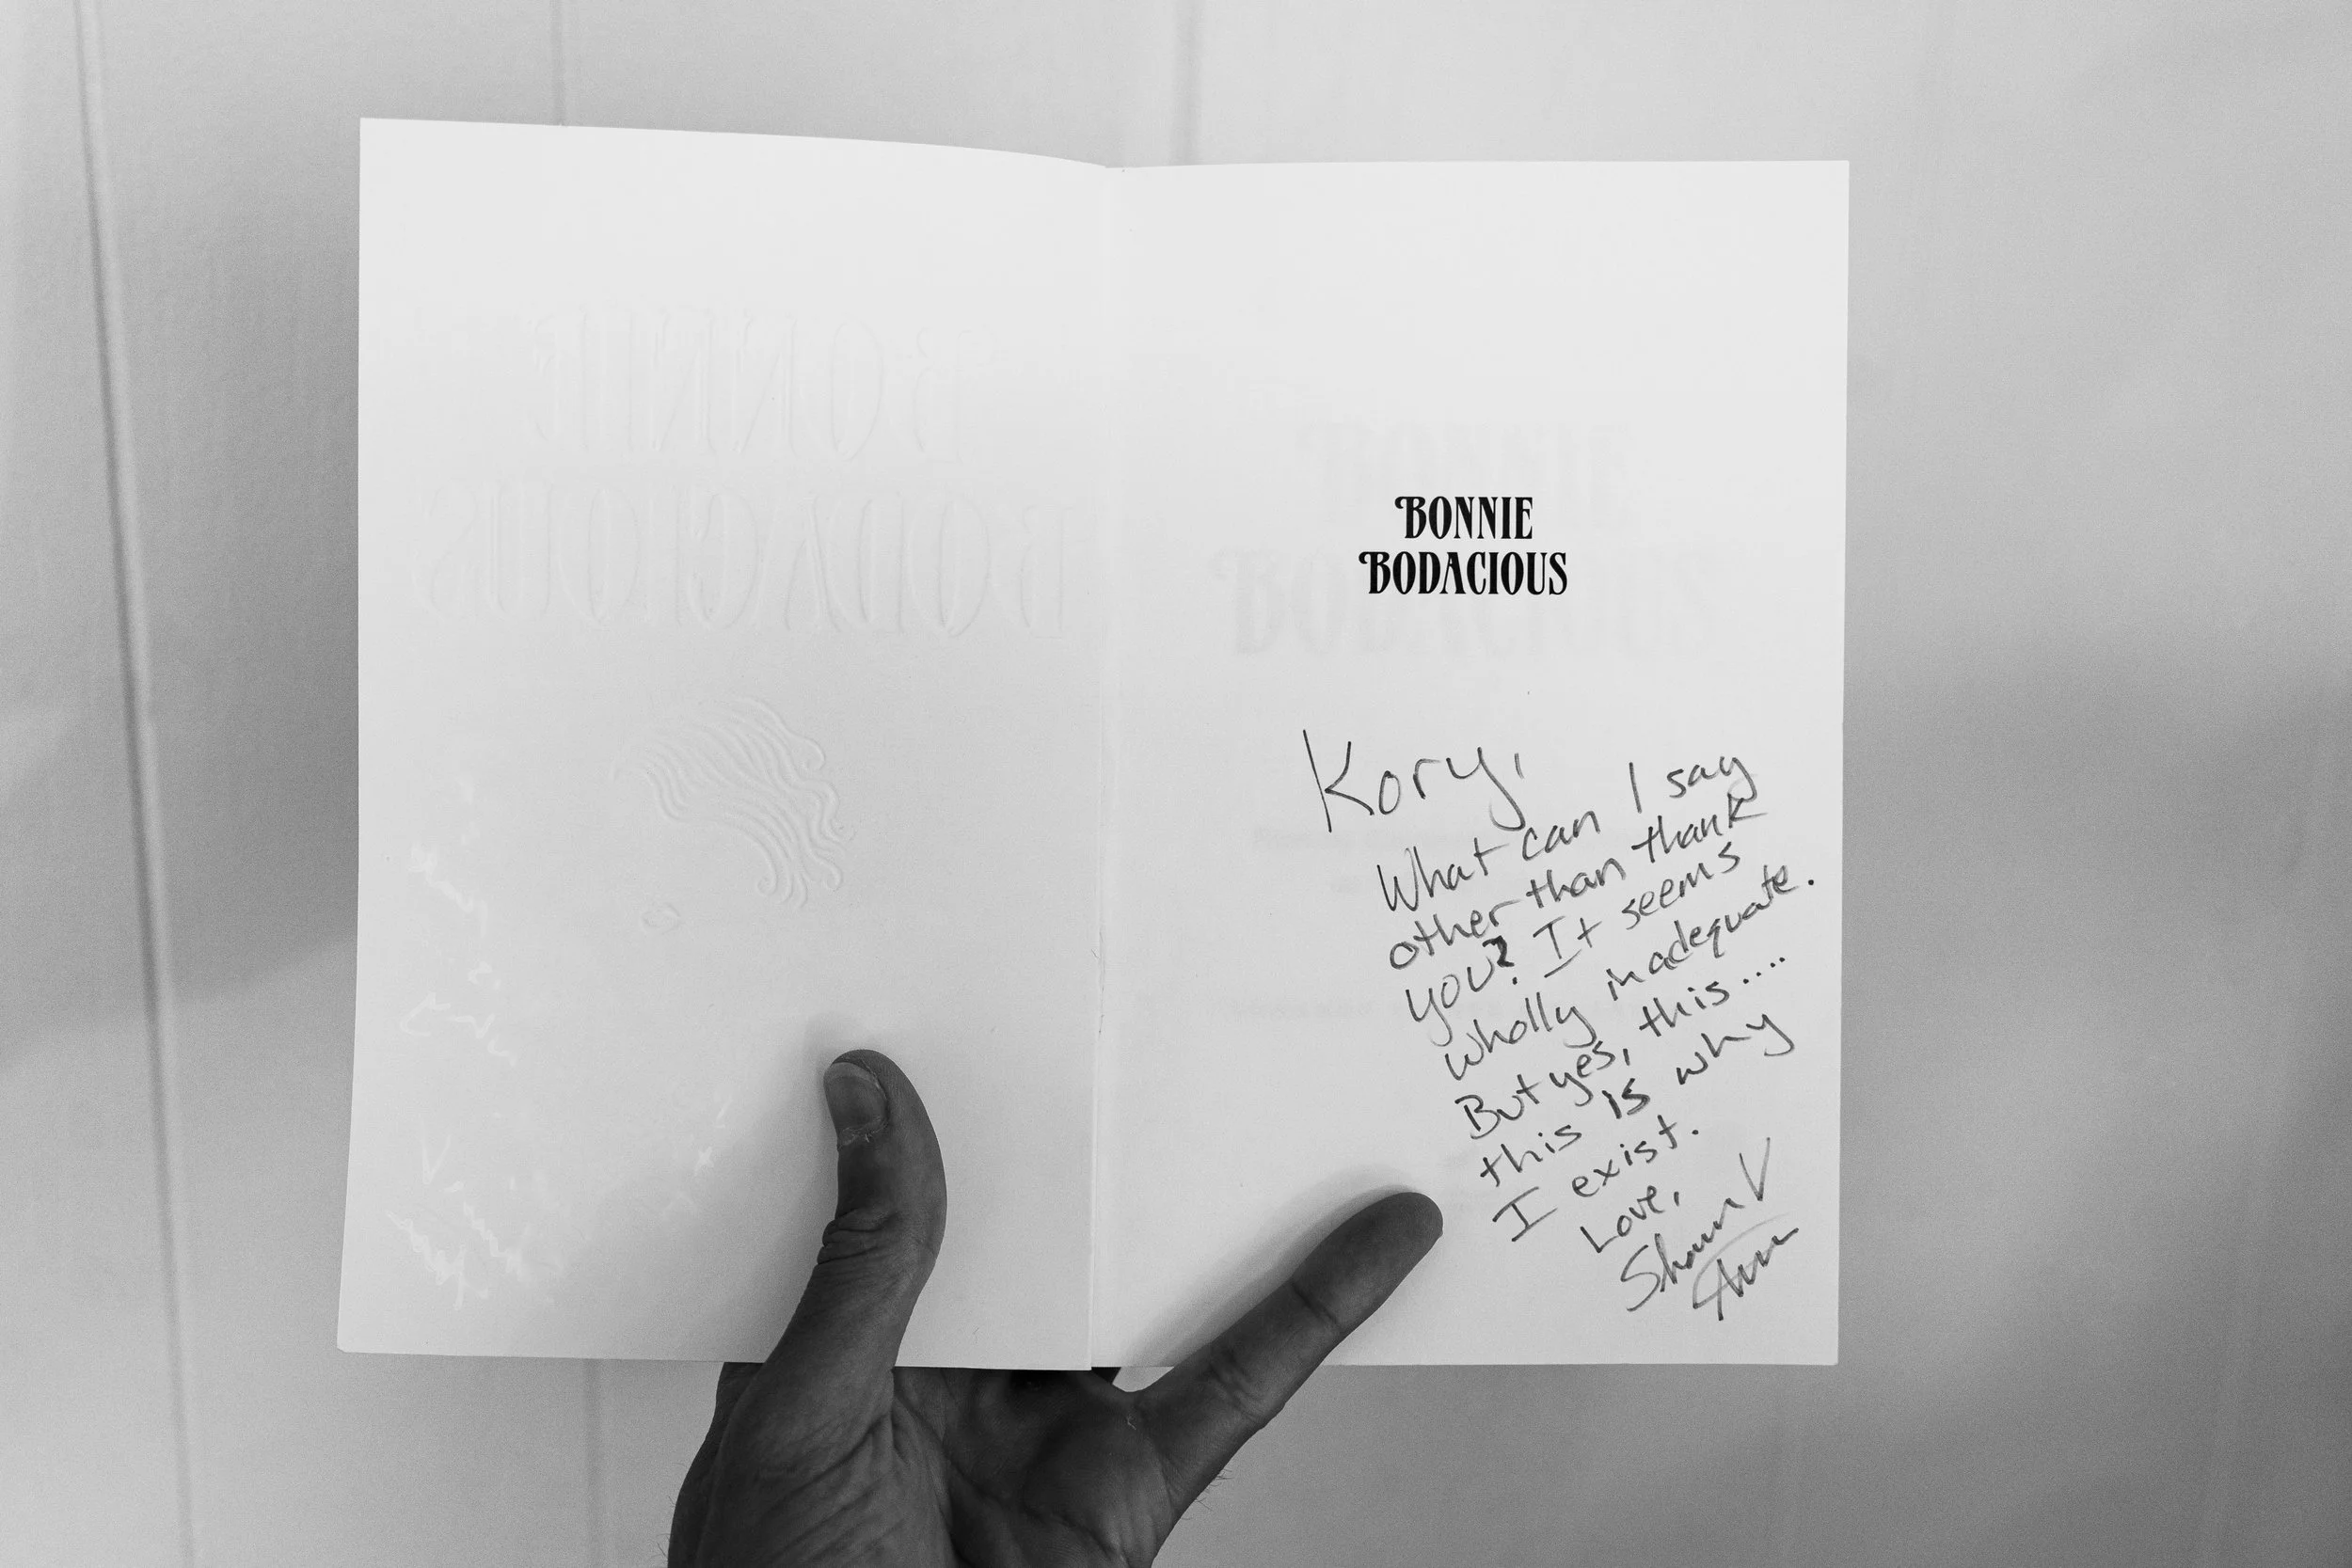 BONNIE
BODACIOUS
BONNIE
BODACIOUS
Kory,
What can I say
other than thank
you? It seems
wholly inadequate.
But yes, this....
this is why
I exist.
Love,
Shawn V